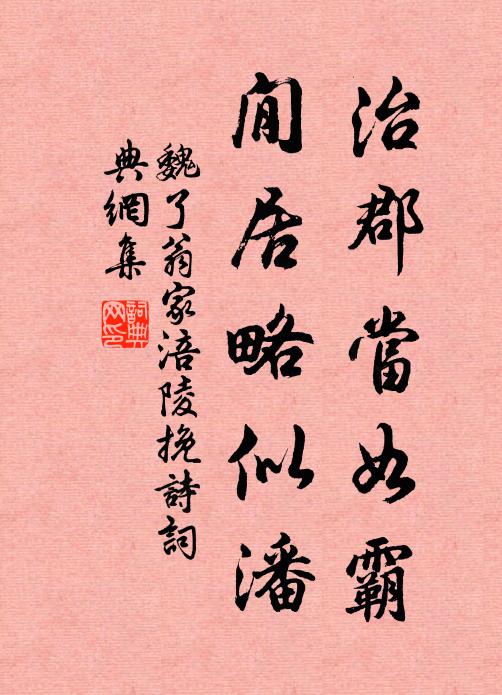 治郡當如霸
閒居略似潘
魏了翁家涪陵挽詩詞
典網集
詞典網印